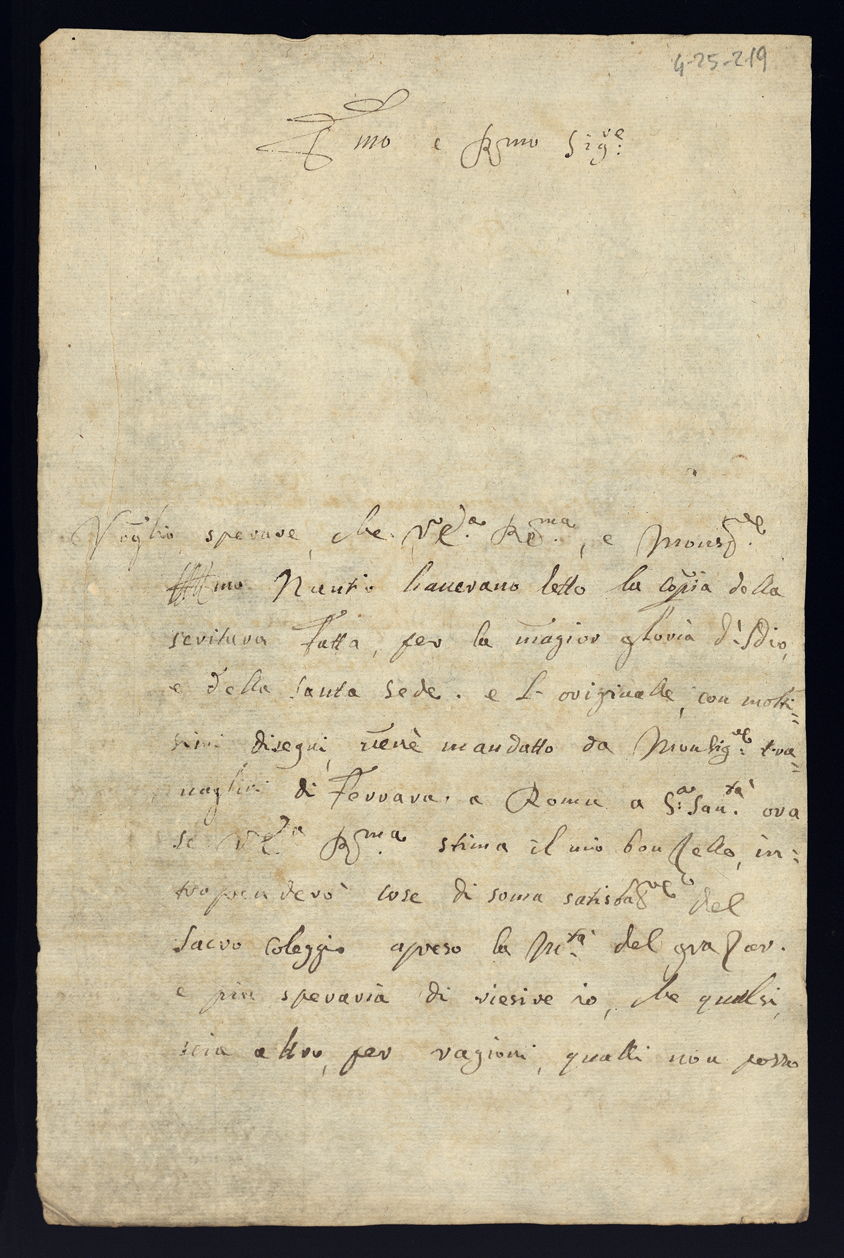 4-25-219
Ill mo e Rmo Sig:re
Voglio sperare, che V.E.za Rma, e Monsig.re
Illmo Nuntio haverano letto la copia della
scritura fatta, per la magior gloria d: Idio,
e della Santa Sede. e L originalle, con molti=
simi disegni, vienè mandatto da Monsig:re tra=
uaglini di Ferrara. a Roma a S:a San:tà ora
se V.E.za Rma stima il mio bon Zello, in=
traprenderò cose di soma satisfa del
Sacro Coleggio apreso la M:tà del gra Zar.
e piu sperarià di riesire io, che qualsi,
scia altro, per ragioni, qualli non posso